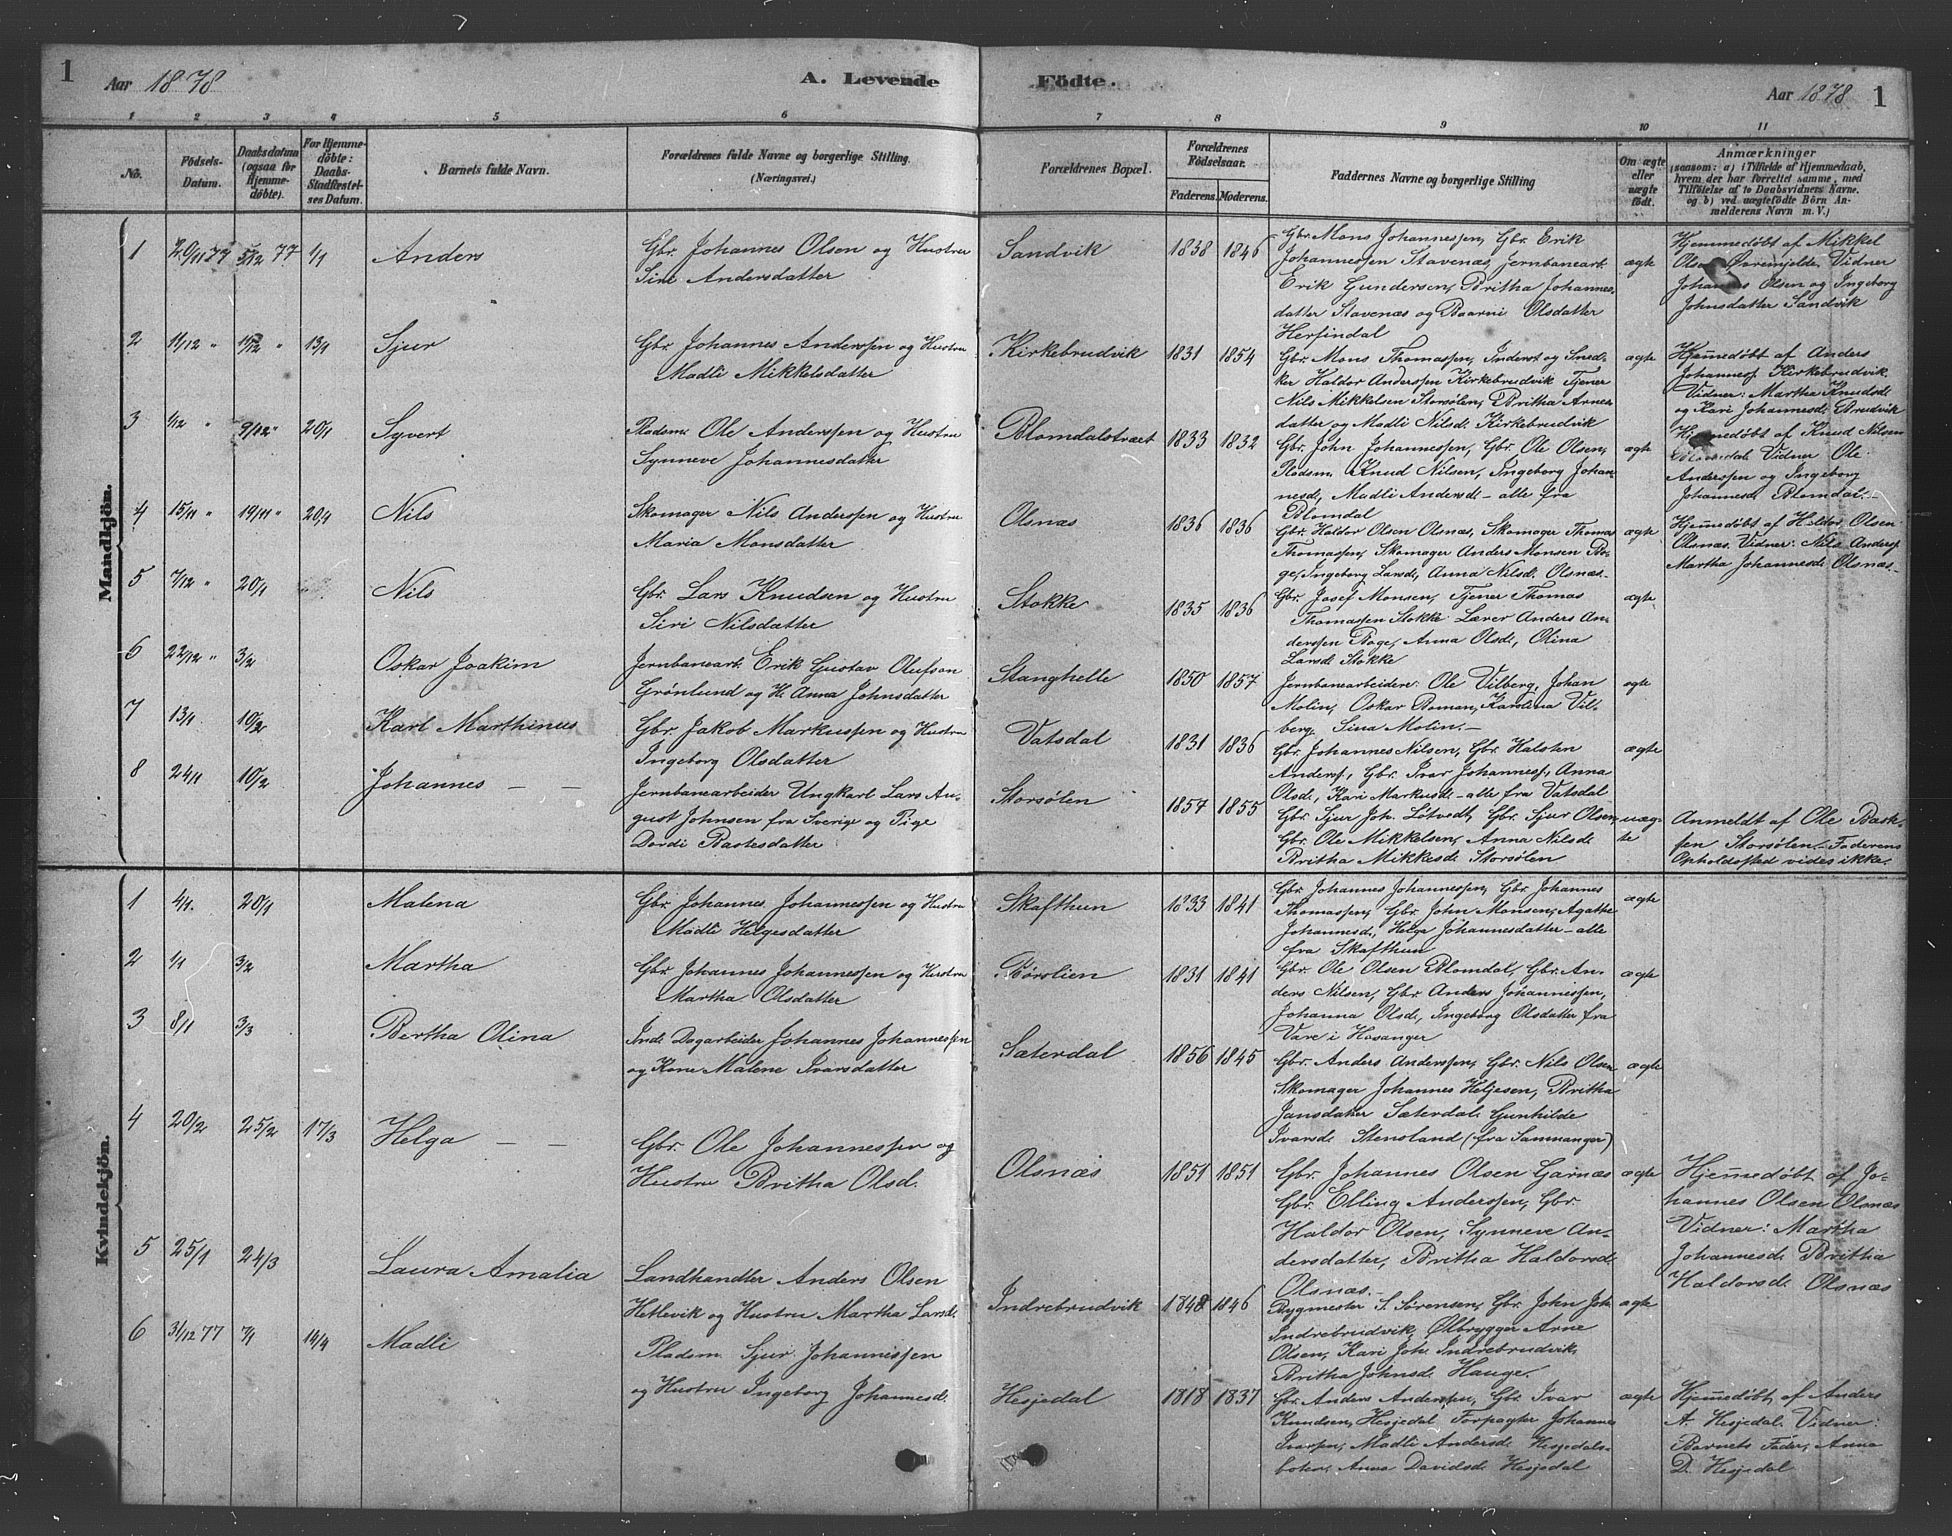 1
Aar 1878
A. Levende
Födte.
Aar 1878
1
1 2 3 4 5 6 7 8 9 10 11
No.
Födsels-
Datum.
Daabsdatum
(ogsaa for
Hjemme-
döbte).
For Hjemme-
döbte:
Daabs-
Stadfæstel-
ses Datum.
Barnets fulde Navn.
Forældrenes fulde Navne og borgerlige Stilling.
(Næringsvei.)
Forældrenes Bopæl.
Forældrenes
Födselsaar.
Faderens. Moderens.
Faddernes Navne og borgerlige Stilling
Om ægte
eller
uægte
født.
Anmærkninger
(saasom: a) i Tilfælde af Hjemmedaab,
hvem der har forrettet samme, med
Tilföielse af to Daabsvidners Navne.
og b) ved uægtefödte Börn An-
melderens Navn m. V.)
Mandkjön.
1
20/11 77
5/12 77
1/1
Anders
Gbr. Johannes Olsen og Hustru
Siri Andersdatter
Sandvik
1838
1846
Gbr Mons Johannessen, Gbr. Erik
Johannessen Stavenæs, Jernbanearb.
Erik Gundersen, Britha Johannes-
datter Stavenæs og Baarni Olsdatter
Herfindal
ægte
Hjemmedøbt af Mikkel
Olsen Øvremjelde. Vidner
Johannes Olsen og Ingeborg
Johnsdatter Sandvik
2
11/12 "
13/1
Sjur
Gbr. Johannes Anderssen og Hustru
Madli Mikkelsdatter
Kirkebrudvik
1831
1854
Gbr. Mons Thomassen, Inderst og Sned-
ker Haldor Anderssen Kirkebrudvik Tjener
Nils Mikkelsen Storsølen, Britha Arne-
datter og Madli Nilsd. Kirkebrudvik
ægte
Hjemmedøbt af Anders
Johanness. Kirkebrudvik.
Vidner: Martha Knudsd.
og Kari Johannesd. Brudvik
3
1/12 "
9/12 "
20/1
Syvert
Pladsm. Ole Anderssen og Hustru
Synneve Johannesdatter
Blomdalstræet
1833
1832
Gbr. John Johannessen, Gbr. Ole Olsen,
Pladsm. Knud Nilsen, Ingeborg Johan-
nesd, Madli Andersd – alle fra
Blomdal
ægte
Hjemmedøbt af Knud Nilsen
Blomdal. Vidner Ole
Anderssen og Ingeborg
Johannesd. Blomdal.–
4
15/11 "
19/11 "
20/1
Nils
Skomager Nils Anderssen og Hustru
Maria Monsdatter
Olsnæs
1836
1836
Gbr. Haldor Olsen Olsnæs, Skomager Thomas
Thomassen, Skomager Anders Monsen Bo-
ge, Ingeborg Larsd, Anna Nilsd. Olsnæs.
ægte
Hjemmedøbt af Haldor Olsen
Olsnæs. Vidner: Nils Anderss.
Martha Johannesd. Olsnæs.–
5
7/12 "
20/1
Nils
Gbr. Lars Knudsen og Hustru
Siri Nilsdatter
Stokke
1835
1836
Gbr. Josef Monsen, Tjener Thomas
Thomassen Stokke Lærer Anders An-
derssen Boge, Anna Olsd., Olina
Larsd. Stokke
ægte
6
22/12 "
3/2
Oskar Joakim
Jernbanearb. Erik Gustav Olufson
Grønlund og H. Anna Johnsdatter
Stanghelle
1850
1857
Jernbanearbeidere: Ole Vilberg, Johan
Molin, Oskar Boman, Karolina Vil-
berg, Sina Molin.–
ægte
7
13/1
10/2
Karl Marthinus
Gbr. Jakob Markussen og Hustru
Ingeborg Olsdatter
Vatsdal
1831
1836
Gbr. Johannes Nilsen, Gbr. Halsten
Anderss, Gbr. Ivar Johanness, Anna
Olsd., Kari Markusd – alle fra Vatsdal
ægte
8
24/1
10/2
Johannes – –
Jernbanearbeider Ungkarl Lars Au-
gust Johnsen fra Sverige og Pige
Dordi Bastesdatter
Storsølen
1857
1855
Gbr. Sjur Joh. Løtvedt, Gbr. Sjur Olsen,
Gbr. Ole Mikkelsen, Anna Nilsd
Britha Mikkelsd. Storsølen
uæg-
te
Anmeldt af Ole Bast-
sen Storsølen – Faderens
Opholdssted vides ikke.
Kvindekjön.
1
4/1
20/1
Malena
Gbr. Johannes Johannessen og Hustru
Madli Helgesdatter
Skafthun
1833
1841
Gbr. Johannes Johannessen, Gbr. Johannes
Thomassen, Gbr. John Monsen, Agatha
Johannesd., Helga Johannesdatter – alle
fra Skafthun
ægte
2
1/1
3/2
Martha
Gbr. Johannes Johannessen og Hustru
Martha Olsdatter
1831
1841
Gbr. Ole Olsen Blomdal, Gbr. An-
ders Nilsen, Gbr. Anders Johannessen,
Johanna Olsd., Ingeborg Olsdatter fra
Vare i Hosanger
ægte
3
8/1
3/3
Bertha Olina
Ind. Dagarbeider Johannes Johannessen
og Kone Malene Ivarsdatter
Sæterdal
1856
1845
Gbr. Anders Anderssen, Gbr. Nils Olsen
Skomager Johannes Heljesen, Britha
Jansdatter Sæterdal. Gunhilde
Ivarsd. Stensland (fra Samnanger)
ægte
4
20/2
25/2
17/3
Helga – –
Gbr. Ole Johannessen og
Hustru Britha Olsd.
Olsnæs
1851
1851
Gbr. Johannes Olsen Garnæs
Gbr. Elling Anderssen, Gbr.
Haldor Olsen, Synneve An-
dersdatter, Britha Haldorsd
Olsnæs.
ægte
Hjemmedøbt af Jo-
hannes Olsen Olsnæs
Vidner: Martha
Johannesd. Britha
Haldorsd. Olsnæs
5
25/1
24/3
Laura Amalia
Landhandler Anders Olsen
Hetlevik og Hustru Martha Larsd.
Indrebrudvik
1848
1846
Bygmester S. Sørensen, Gbr. John Joh.
Indrebrudvik, Ølbrygger Arne
Olsen, Kari Joh. Indrebrudvik,
Britha Johnsd. Hauge.
ægte
6
31/12 77
7/1
14/4
Madli
Pladsm. Sjur Johannessen
og Hustru Ingeborg Johannesd.
Hesjedal
1818
1837
Gbr. Anders Anderssen, Gbr. Ivar
Knudsen, Hesjedal Forpagter Johannes
Ivarsen, Madli Andersd. Hesjedals-
boten, Anna Davidsd. Hesjedal
ægte
Hjemmedøbt af Anders
A. Hesjedal. Vidner:
Barnets Fader, Anna
D. Hesjedal